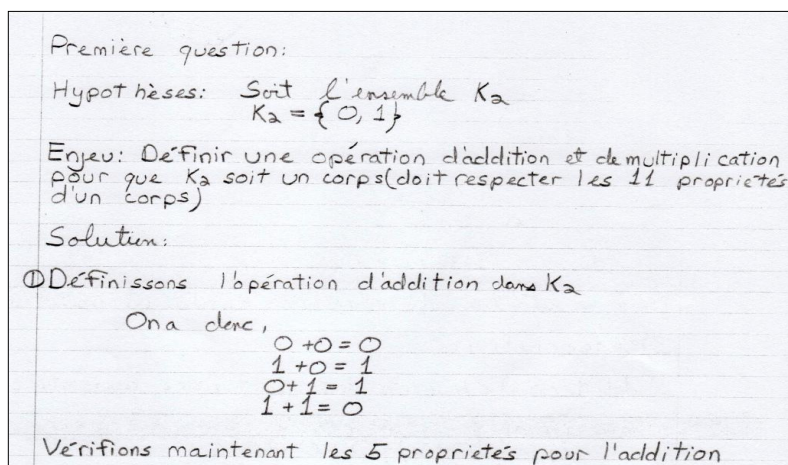 Première question:
Hypothèses: Soit l'ensemble K2
K2 = {0, 1}
Enjeu: Définir une opération d'addition et de multiplication
pour que K2 soit un corps (doit respecter les 11 propriétés
d'un corps)
Solution:
① Définissons l'opération d'addition dans K2
On a donc,
0 + 0 = 0
1 + 0 = 1
0 + 1 = 1
1 + 1 = 0
Vérifions maintenant les 5 propriétés pour l'addition